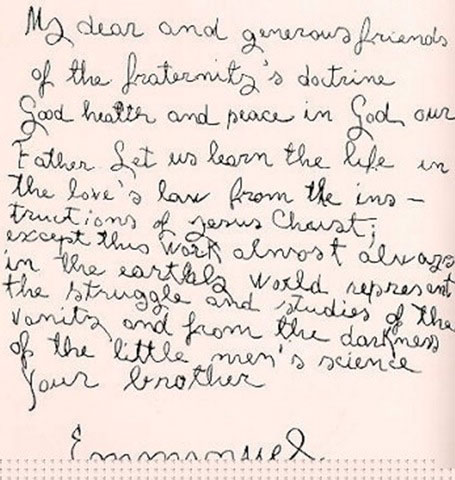 My dear and generous friends
of the fraternity's doctrine
Good healtr and peace in God, our
Father. Let us learn the life in
the love's law from the ins-
tructions of Jesus Chrust;
except thus work almost always
in the earthly world represent
the struggle and studies of the
vanity and from the darkness
of the little men's science
Your brother
Emmanuel.